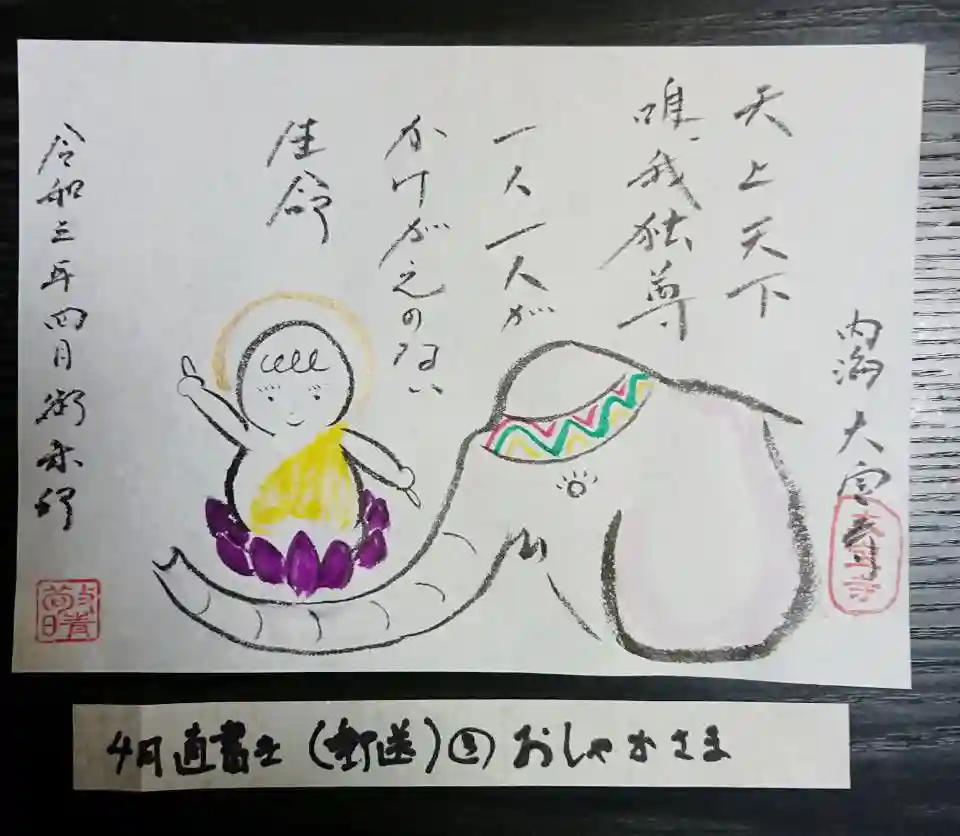 天上天下
唯我独尊
一人一人が
かけがえのない
生命
内潟 大宮寺
令和三年四月
4月直書き(郵送)③おしゃかさま